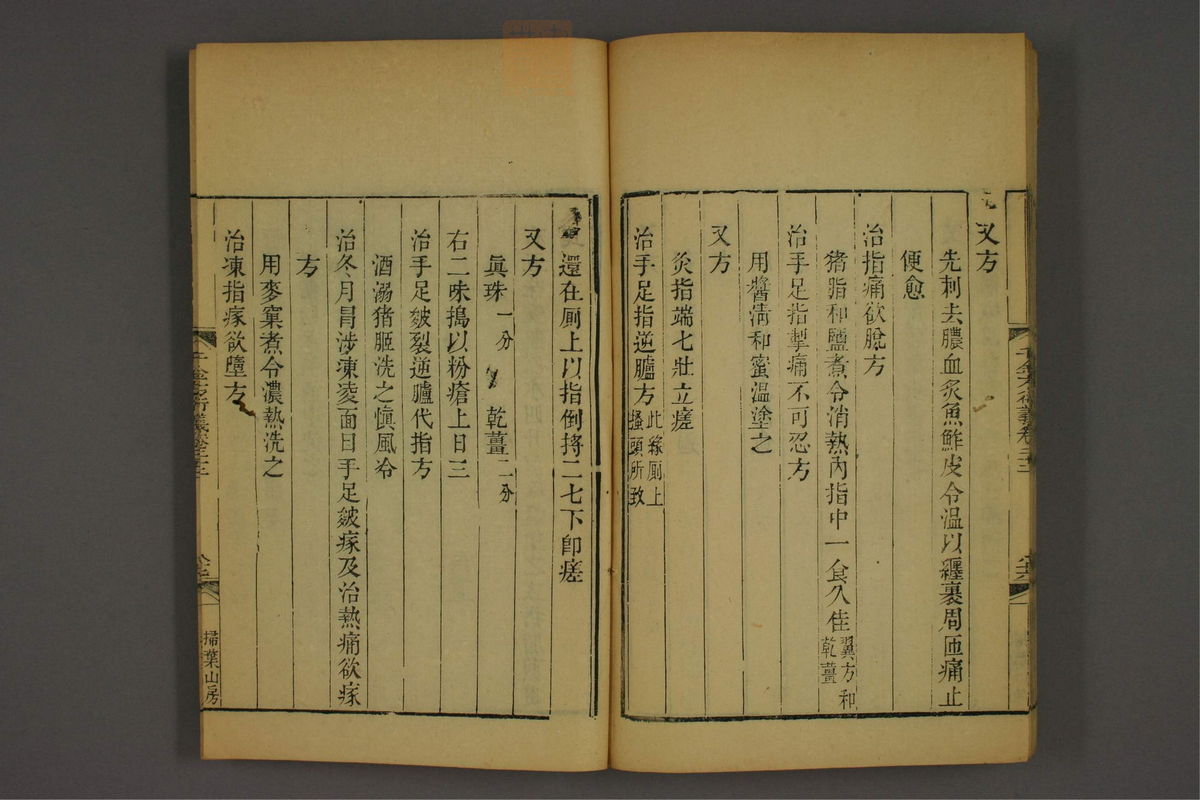 又方
先刺去膿血炙魚鮓皮令溫以纒裹周匝痛止
便愈
治指痛欲脫方
猪脂和鹽煮令消熱內指中一食久佳翼方和乾薑
治手足指掣痛不可忍方
用醬淸和蜜溫塗之
又方
灸指端七壯立瘥
治手足指逆臚方此緣厠上搔頭所致
還在厠上以指倒捋二七下卽瘥
又方
眞珠一分 乾薑二分
右二味搗以粉瘡上日三
治手足皴裂逆臚代指方
酒溺猪胰洗之愼風冷
治冬月冐涉凍凌面目手足皴瘃及治熱痛欲瘃
方
用麥窠煮令濃熱洗之
治凍指瘃欲墮方
千金方衍義卷二十二
掃葉山房